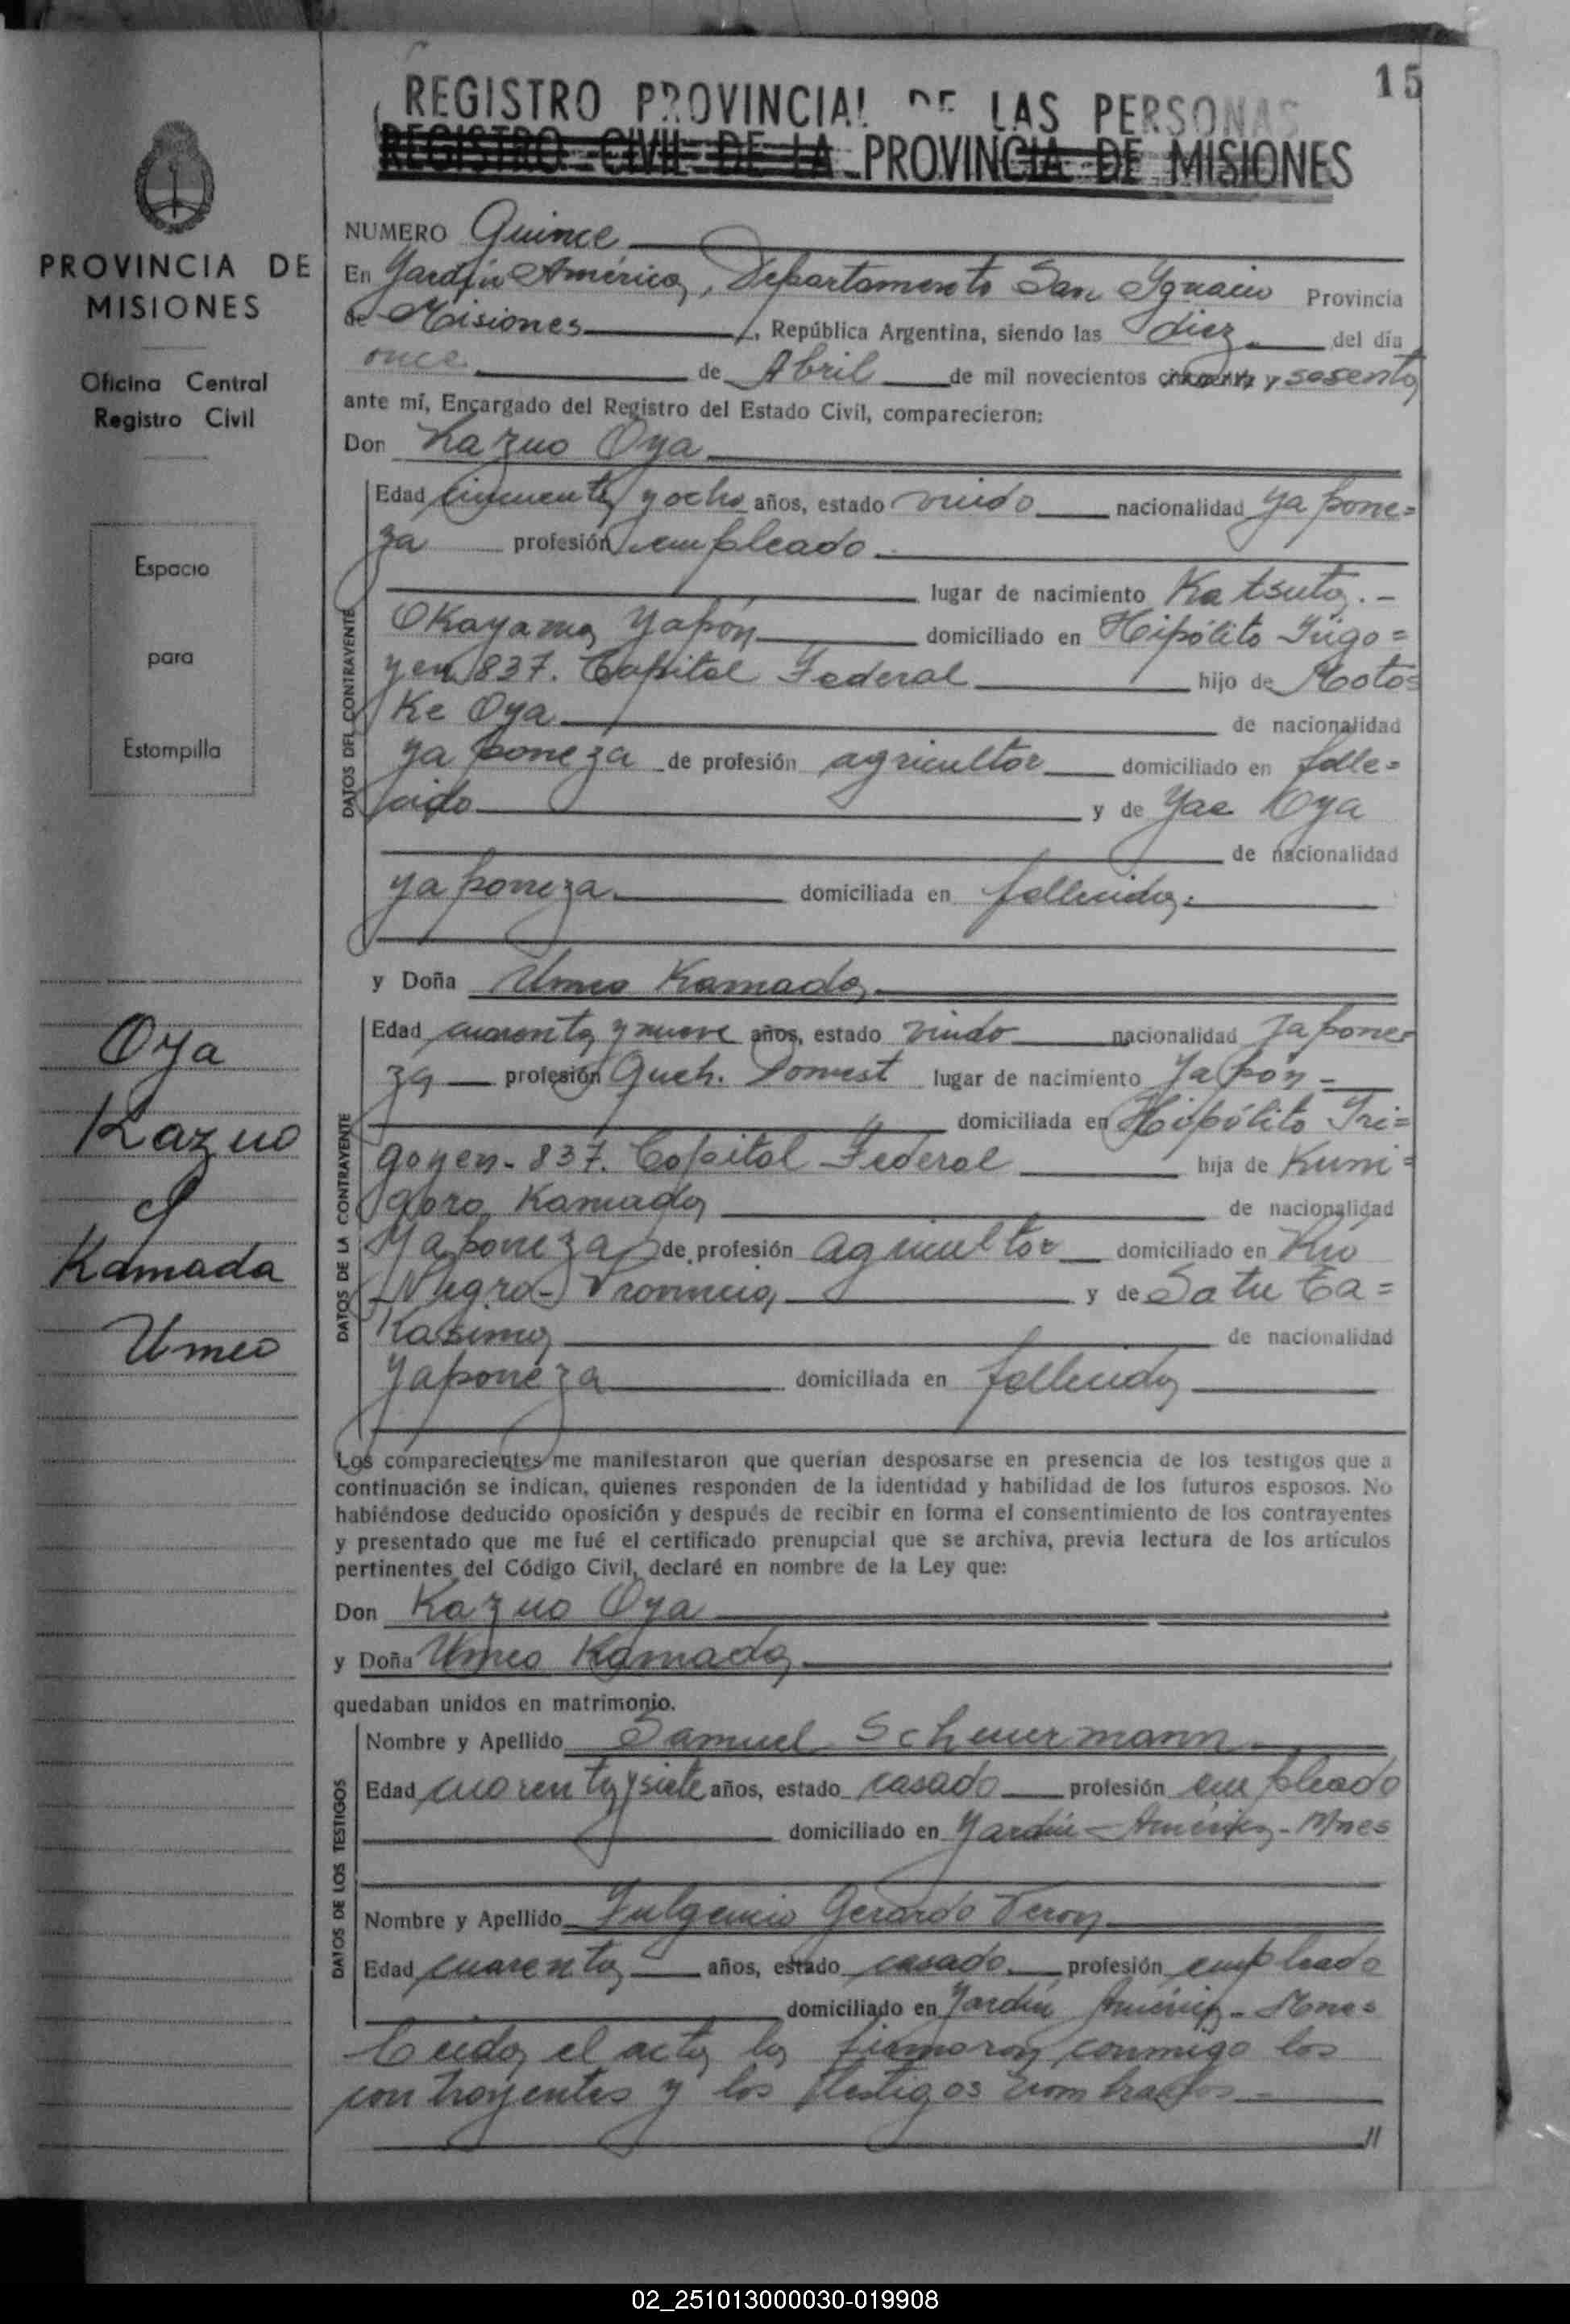 15
REGISTRO PROVINCIAL DE LAS PERSONAS
REGISTRO CIVIL DE LA PROVINCIA DE MISIONES
PROVINCIA DE
MISIONES
Oficina Central
Registro Civil
Espacio
para
Estampilla
Oya
Kazuo
y
Kamada
Umeo
NUMERO Quince
En Jardín América, Departamento San Ygnacio Provincia
de Misiones, República Argentina, siendo las diez del día
once de Abril de mil novecientos cincuenta y sesenta
ante mí, Encargado del Registro del Estado Civil, comparecieron:
Don Kazuo Oya
DATOS DEL CONTRAYENTE
Edad cincuenta y ocho años, estado viudo nacionalidad yapone=
za profesión empleado
lugar de nacimiento Katsuta.-
Okayama Yapón domiciliado en Hipólito Yrigo=
yen 837. Capital Federal hijo de Moto=
Ke Oya de nacionalidad
yaponeza de profesión agricultor domiciliado en falle=
cido y de Yae Oya
de nacionalidad
yaponeza domiciliada en fallecida.
y Doña Umeo Kamada
DATOS DE LA CONTRAYENTE
Edad cuarenta y nueve años, estado viudo nacionalidad Japone=
za profesión Queh. Domest lugar de nacimiento Japón -
domiciliada en Hipólito Iri=
goyen - 837. Capital Federal hija de Kuni=
goro Kamada de nacionalidad
Yaponeza de profesión agricultor domiciliado en Rio
Negro - Provincia y de Satu Ta=
Kasima de nacionalidad
Yaponeza domiciliada en fallecida
Los comparecientes me manifestaron que querían desposarse en presencia de los testigos que a
continuación se indican, quienes responden de la identidad y habilidad de los futuros esposos. No
habiéndose deducido oposición y después de recibir en forma el consentimiento de los contrayentes
y presentado que me fué el certificado prenupcial que se archiva, previa lectura de los artículos
pertinentes del Código Civil, declaré en nombre de la Ley que:
Don Kazuo Oya
y Doña Umeo Kamada
quedaban unidos en matrimonio.
DATOS DE LOS TESTIGOS
Nombre y Apellido Samuel Scheuermann
Edad cuarenta y siete años, estado casado profesión empleado
domiciliado en Jardín América - Mnes
Nombre y Apellido Fulgencio Gerardo Veron
Edad cuarenta años, estado casado profesión empleado
domiciliado en Jardín América - Mnes
Leida el acta la firmaron conmigo los
contrayentes y los testigos nombrados -
02_251013000030-019908